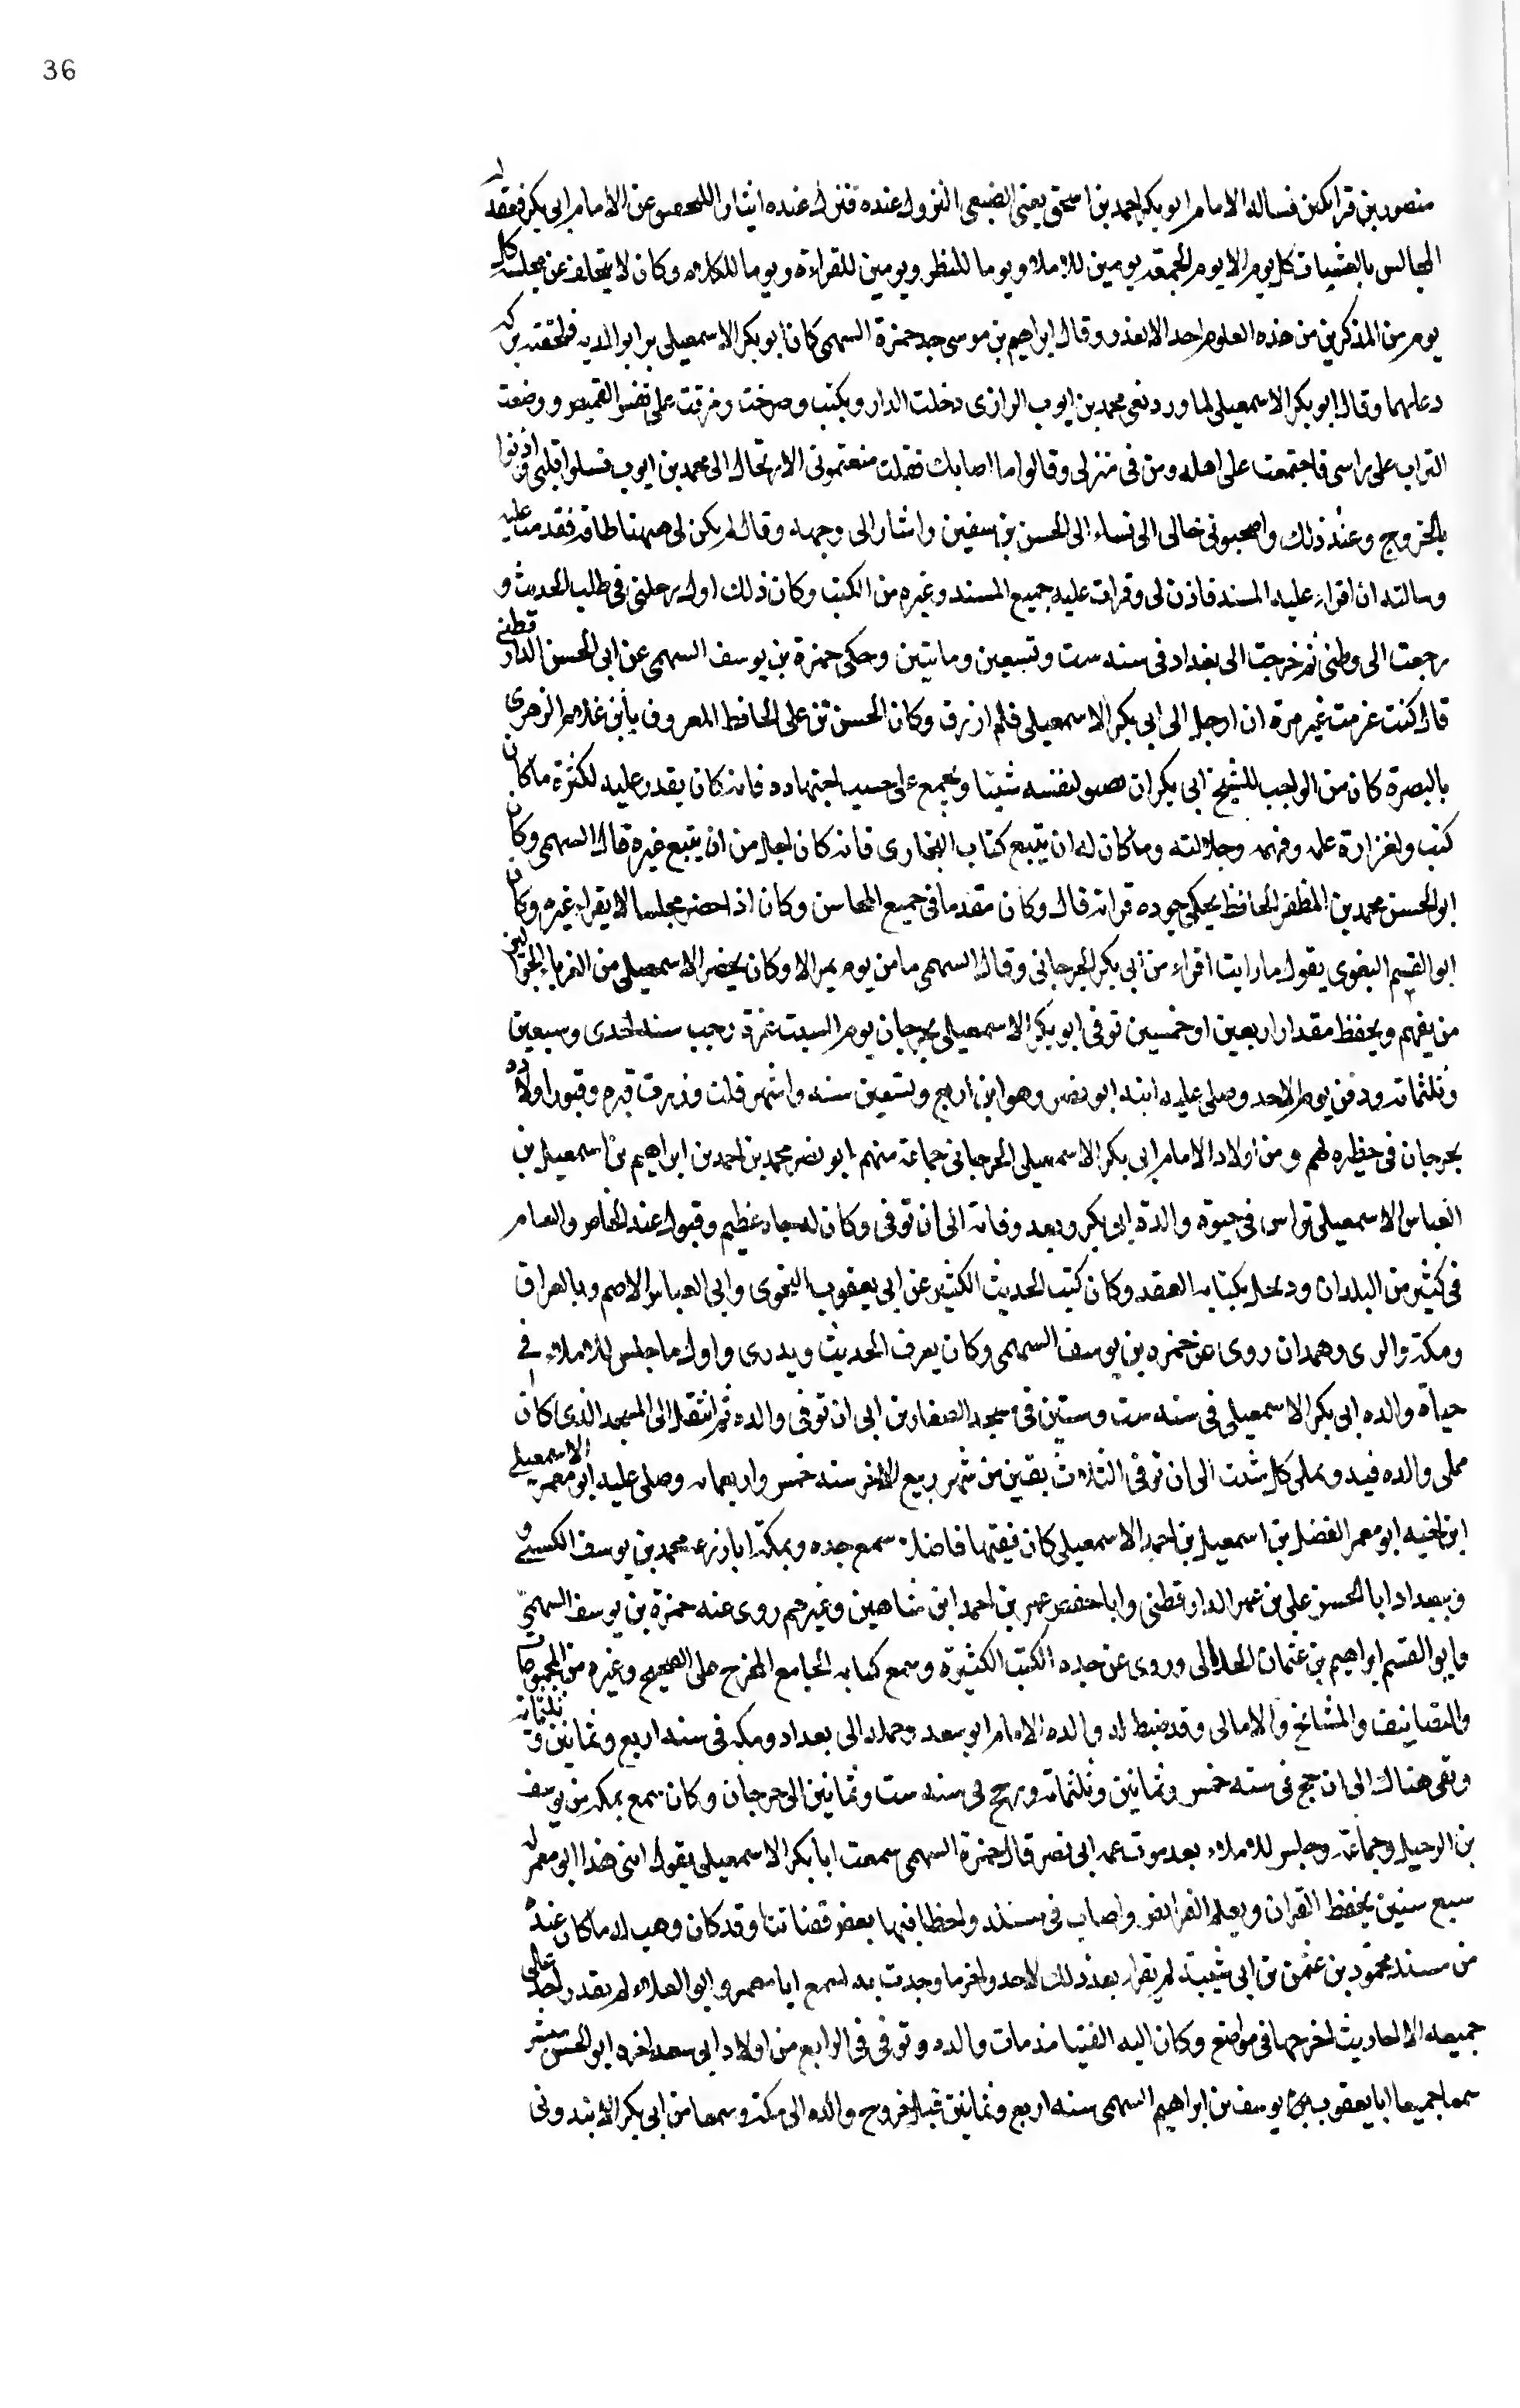 36
منصور بن قراتكين فساله الامام ابو بكر احمد بن اسحق يعنى الضبعى النزول عنده فنزل عنده عن الامام ابى بكر فعقد له
المجالس بالعشيات كل يوم الا يوم الجمعة يومين للاملاء ويوما للنظر ويومين للقراءة ويوما للكلام وكان لا يتخلف عن مجلسه كل
يوم من المذكرين من هذه العلوم احد الا لعذر وقال ابراهيم بن موسى جد حمزة السهمى كان ابو بكر الاسمعيلى برا بوالديه فلحقته بركة
دعائهما وقال ابو بكر الاسمعيلى لما ورد نعى محمد بن ايوب الرازى دخلت الدار وبكيت وصرخت ومزقت على نفسى القميص ووضعت
التراب على راسى فاجتمعت على اهله ومن فى منزلى وقالوا ما اصابك فقلت منعتمونى الارتحال الى محمد بن ايوب فسلوا قلبى واذنوا
بالخروج وعند ذلك واصحبونى خالى الى نساء الى الحسن بن سفين واشار الى وجهه وقال لم يكن لى ههنا طاقة فقدمت عليه
وسالته ان اقراء عليه المسند فاذن لى وقرات عليه جميع المسند وغيره من الكتب وكان ذلك اول رحلتى فى طلب الحديث و
رجعت الى وطنى ثم خرجت الى بغداد فى سنه ست وتسعين وماتين وحكى حمزة بن يوسف السهمى عن ابى الحسن الدارقطنى
قال كنت عزمت غير مرة ان ارحل الى ابى بكر الاسمعيلى فلم ارزق وكان الحسن بن على الحافظ المعروف بابن غلام الزهرى
بالبصرة كان من الواجب للشيخ ابى بكر ان لنفسه شيئا ويجمع على حسب اجتهاده فانه كان يقدر عليه لكثرة ما كان
كتب ولغزارة علمه وفهمه وجلالته وما كان له ان يتبع كتاب البخارى فانه كان اجل من ان يتبع غيره قال السهمى وكان
ابو الحسن محمد بن المظفر الحافظ يحكى جوده قراته قال وكان مقدما فى جميع المجالس وكان اذا حضر مجلسا لا يقراء غيره وكان
ابو القسم البغوى يقول ما رايت اقراء من ابى بكر الجرجانى وقال السهمى ما من يوم يمر الا وكان يحضر الاسمعيلى من الغرباء الجوالين
من يفهم ويحفظ مقدار اربعين او خمسين توفى ابو بكر الاسمعيلى بجرجان يوم السبت غرة رجب سنه احدى وسبعين
وثلثمائه ودفن يوم الاحد وصلى عليه ابنه ابو نصر وهو ابن اربع وتسعين سنه واشهر قلت وزرت قبره وقبور اولاده
بجرجان فى حظيره لهم ومن اولاد الامام ابى بكر الاسمعيلى الجرجانى جماعة منهم ابو نصر محمد بن احمد بن ابراهيم بن اسمعيل بن
العباس الاسمعيلى تراس فى حيوة والده ابى بكر وبعد وفاته الى ان توفى وكان له جاه عظيم وقبول عند الخاص والعام
فى كثير من البلدان بكتابه العقد وكان كتب الحديث الكثير عن ابى يعقوب وابى العباس الاصم وبالعراق
ومكة والرى وهمدان روى عن حمزه بن يوسف السهمى وكان يعرف الحديث ويدرى واول ما جلس للاملاء فى
حياة والده ابى بكر الاسمعيلى فى سنه ست وستين فى مسجد الصفارين الى ان توفى والده ثم انتقل الى المسجد الذى كان
يملى والده فيه ويملى كل سبت الى ان توفى الثلاث بقين من شهر ربيع الاخر سنه خمس واربعمائه وصلى عليه ابو معمر الاسمعيلى
ابن اخيه ابو معمر الفضل بن اسمعيل بن احمد الاسمعيلى كان فقيها فاضلا سمع جده وبمكة ابا زرعه محمد بن يوسف الكسى
وببغداد ابا الحسن على بن عمر الدارقطنى وابا حفص عمر بن احمد ابن شاهين وغيرهم روى عنه حمزة بن يوسف السهمى
وابو القسم ابراهيم بن عثمان الخلالى وروى عن جده الكتب الكثيرة وسمع كتابه الجامع المخرج على الصحيح وغيره من المجموعات
والتصانيف والمشائخ والامالى وقد ضبط له والده الامام ابو سعد وحمله الى بغداد ومكه فى سنه اربع وثمانين وثلثمائه
وبقى هناك الى ان حج فى سنه خمس وثمانين وثلثمائه ورجع فى سنه ست وثمانين الى جرجان وكان سمع بمكه من يوسف
بن الدخيل وجماعة وجلس للاملاء بعد موت عمه ابى نصر قال حمزة السهمى سمعت ابا بكر الاسمعيلى يقول ابنى هذا ابو معمر له
سبع سنين يحفظ القران ويعلم الفرايض واصاب فى مسئله واخطا فيها بعض قضاتنا وقد كان وهب له ما كان عنده
من مسند محمود بن عثمن بن ابى شيبة لم يقراء بعد ذلك لاحد واخر ما وجدت به سمع ابا معمر وابو العلاء لم يقدر احد على
جميعه الا احاديث اخرجها فى مواضع وكان اليه الفتيا منذ مات والده وتوفى فى الرابع من اولاد ابى سعد اخوه ابو الحسن مبشر
سمعا جميعا ابا يعقوب يوسف بن ابراهيم السهمى سنه اربع وثمانين قبل خروج والده الى مكة وسمعا من ابى بكر الابندونى